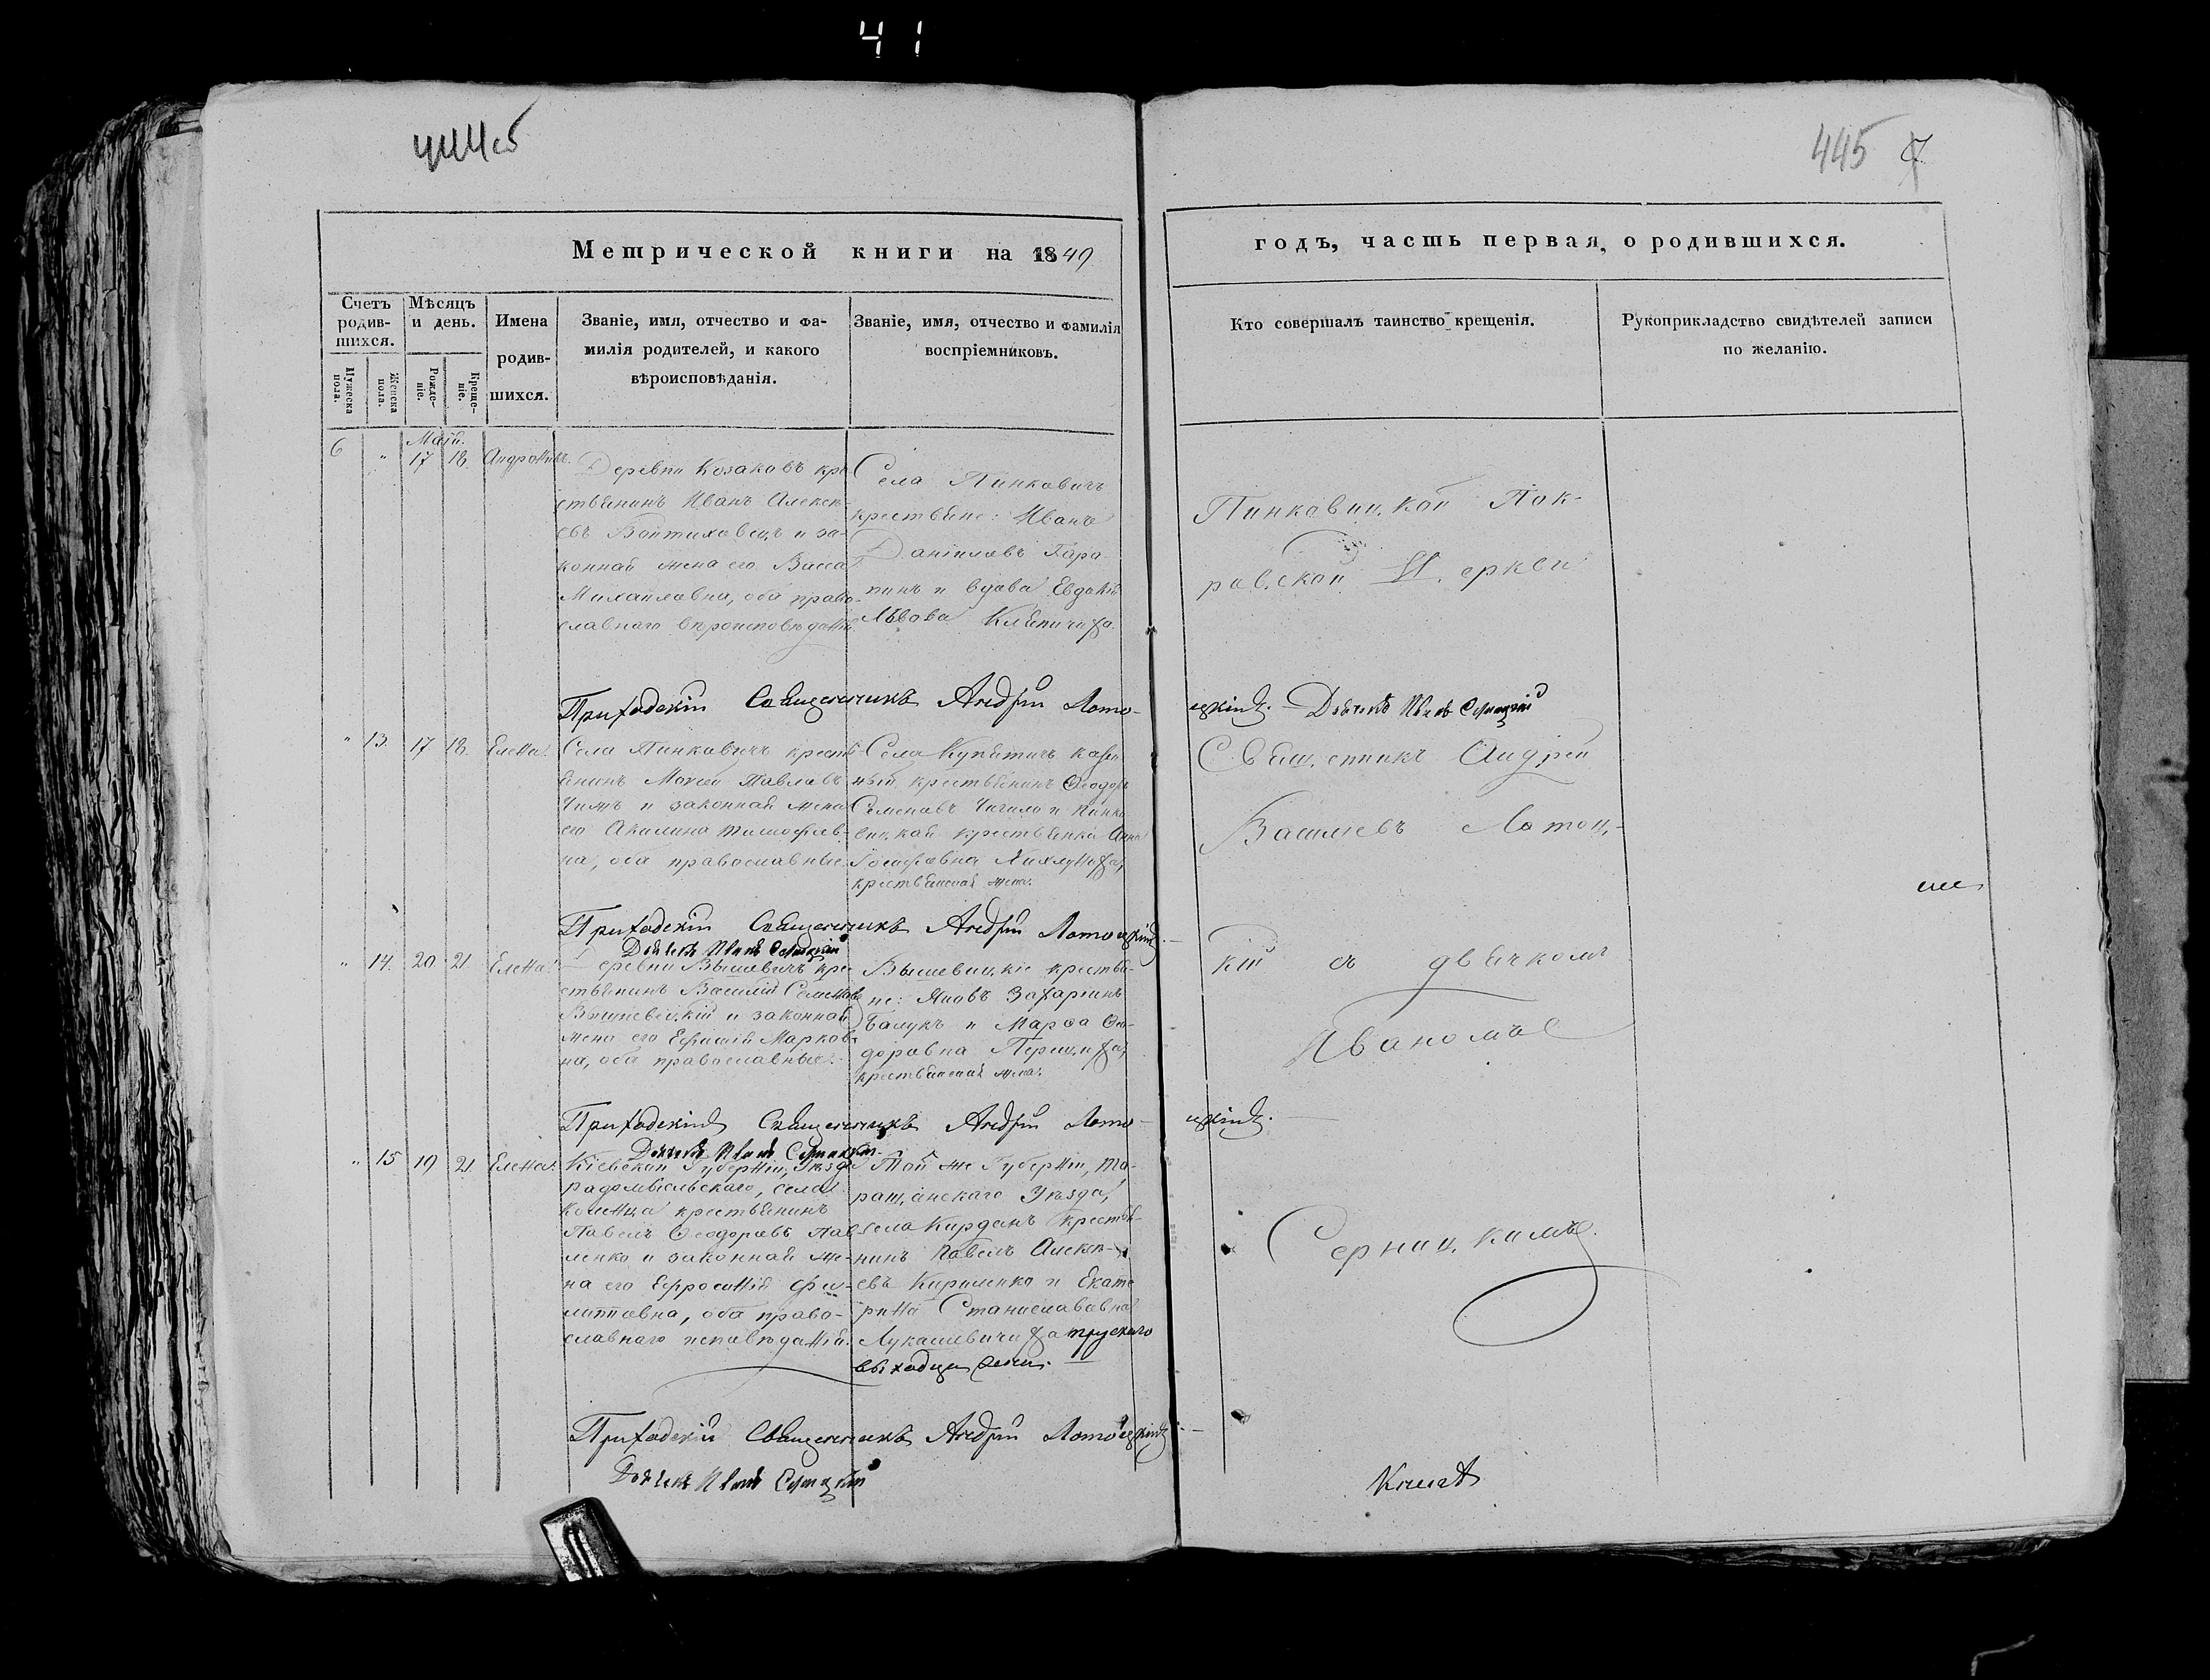 41
444об
445
7
Метрической книги на 1849
годъ, часть первая, о родившихся.
Счетъ родив-шихся.
Мужеска пола.
Женска пола.
Мѣсяцъ и день.
Рожде-ніе.
Креще-ніе.
Имена
родив-
шихся.
Званіе, имя, отчество и фа-
милія родителей, и какого
вѣроисповѣданія.
Званіе, имя, отчество и фамилія
воспріемниковъ.
Кто совершалъ таинство крещенія.
Рукоприкладство свидѣтелей записи
по желанію.
6 " Маія. 17 18. Андроникъ.
Деревни Козаковъ кре-
стьянинъ Иванъ Алексѣ-
евъ Войтиховецъ и за-
конная жена его Васса
Михайловна, оба право-
славнаго вѣроисповѣданія.
Села Пинковичъ
крестьяне: Иванъ
Даніиловъ Гара-
нинъ и вдова Евдокія
Львова
Пинковицкой Пок-
ровской Церкви
Приходскій Священникъ Андрей Лото-
цкій. Дьячекъ Иванъ Серницкій
" 13. 17 18. Елена.
Села Пинковичъ кресть-
янинъ Моисей Павловъ
Чижъ и законная жена
его Акилина Тимофѣев-
на, оба православные.
Села Купятичъ казен-
ный крестьянинъ Ѳеодоръ
Семеновъ Чигило и Пинко-
вицкая крестьянка Анна
Іосифовна
крестьянская жена.
Священникъ Андрей
Васильевъ Лотоц-
Приходскій Священникъ Андрей Лотоцкій.
Дьячекъ Иванъ Серницкій
" 14. 20 21 Елена.
Деревни Вышевичъ кре-
стьянинъ Василій Семеновъ
Вышевскій и законная
жена его Евфимія Марков-
на, оба православные.
Вышевицкіе крестья-
не: Яковъ Захаріинъ
Балукъ и Марѳа Ѳео-
доровна
крестьянская жена.
кій съ дьячкомъ
Иваномъ
Приходскій Священникъ Андрей Лото-
цкій.
Дьячекъ Иванъ Серницкій
" 15 19 21. Елена.
Кіевской Губерніи, Уѣзда
Радомысльскаго, села
крестьянинъ
Павелъ Ѳеодоровъ Пав-
ленко и законная же-
на его Ефросинія Фи-
липповна, оба право-
славнаго исповѣданія.
Той же Губерніи, Та-
ращанскаго Уѣзда,
села Кирданъ крестья-
нинъ Павелъ Алексѣ-
евъ Кириленко и Екате-
рина Станиславовна
Лукашевичиха прускаго
выходца жена.
Серницкимъ.
Приходскій Священникъ Андрей Лотоцкій.
Дьячекъ Иванъ Серницкій